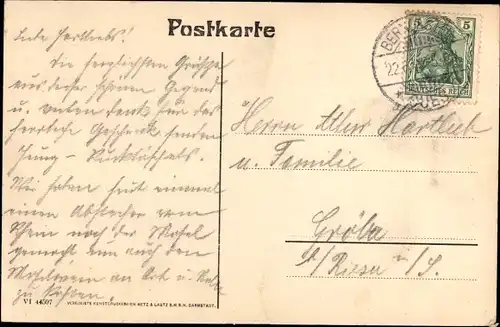 Postkarte
Liebe Hartliebs!
Die herzlichsten Grüsse
aus dieser schönen Gegend
u. vielen Dank für das
herrliche Geschenk senden
Jung-
Wir haben heut einmal
einen Abstecher vom
Rhein nach der Mosel
gemacht um auch den
Moselwein an Ort u. Stelle
zu kosten.
VI 44507
VEREINIGTE KUNSTDRUCKEREIEN METZ & LAUTZ G.M.B.H. DARMSTADT.
5 5
DEUTSCHES REICH
BERNCASTEL
22.
CUES
Herrn Hartlieb
u. Familie
Gröba
b/Riesa i/S.